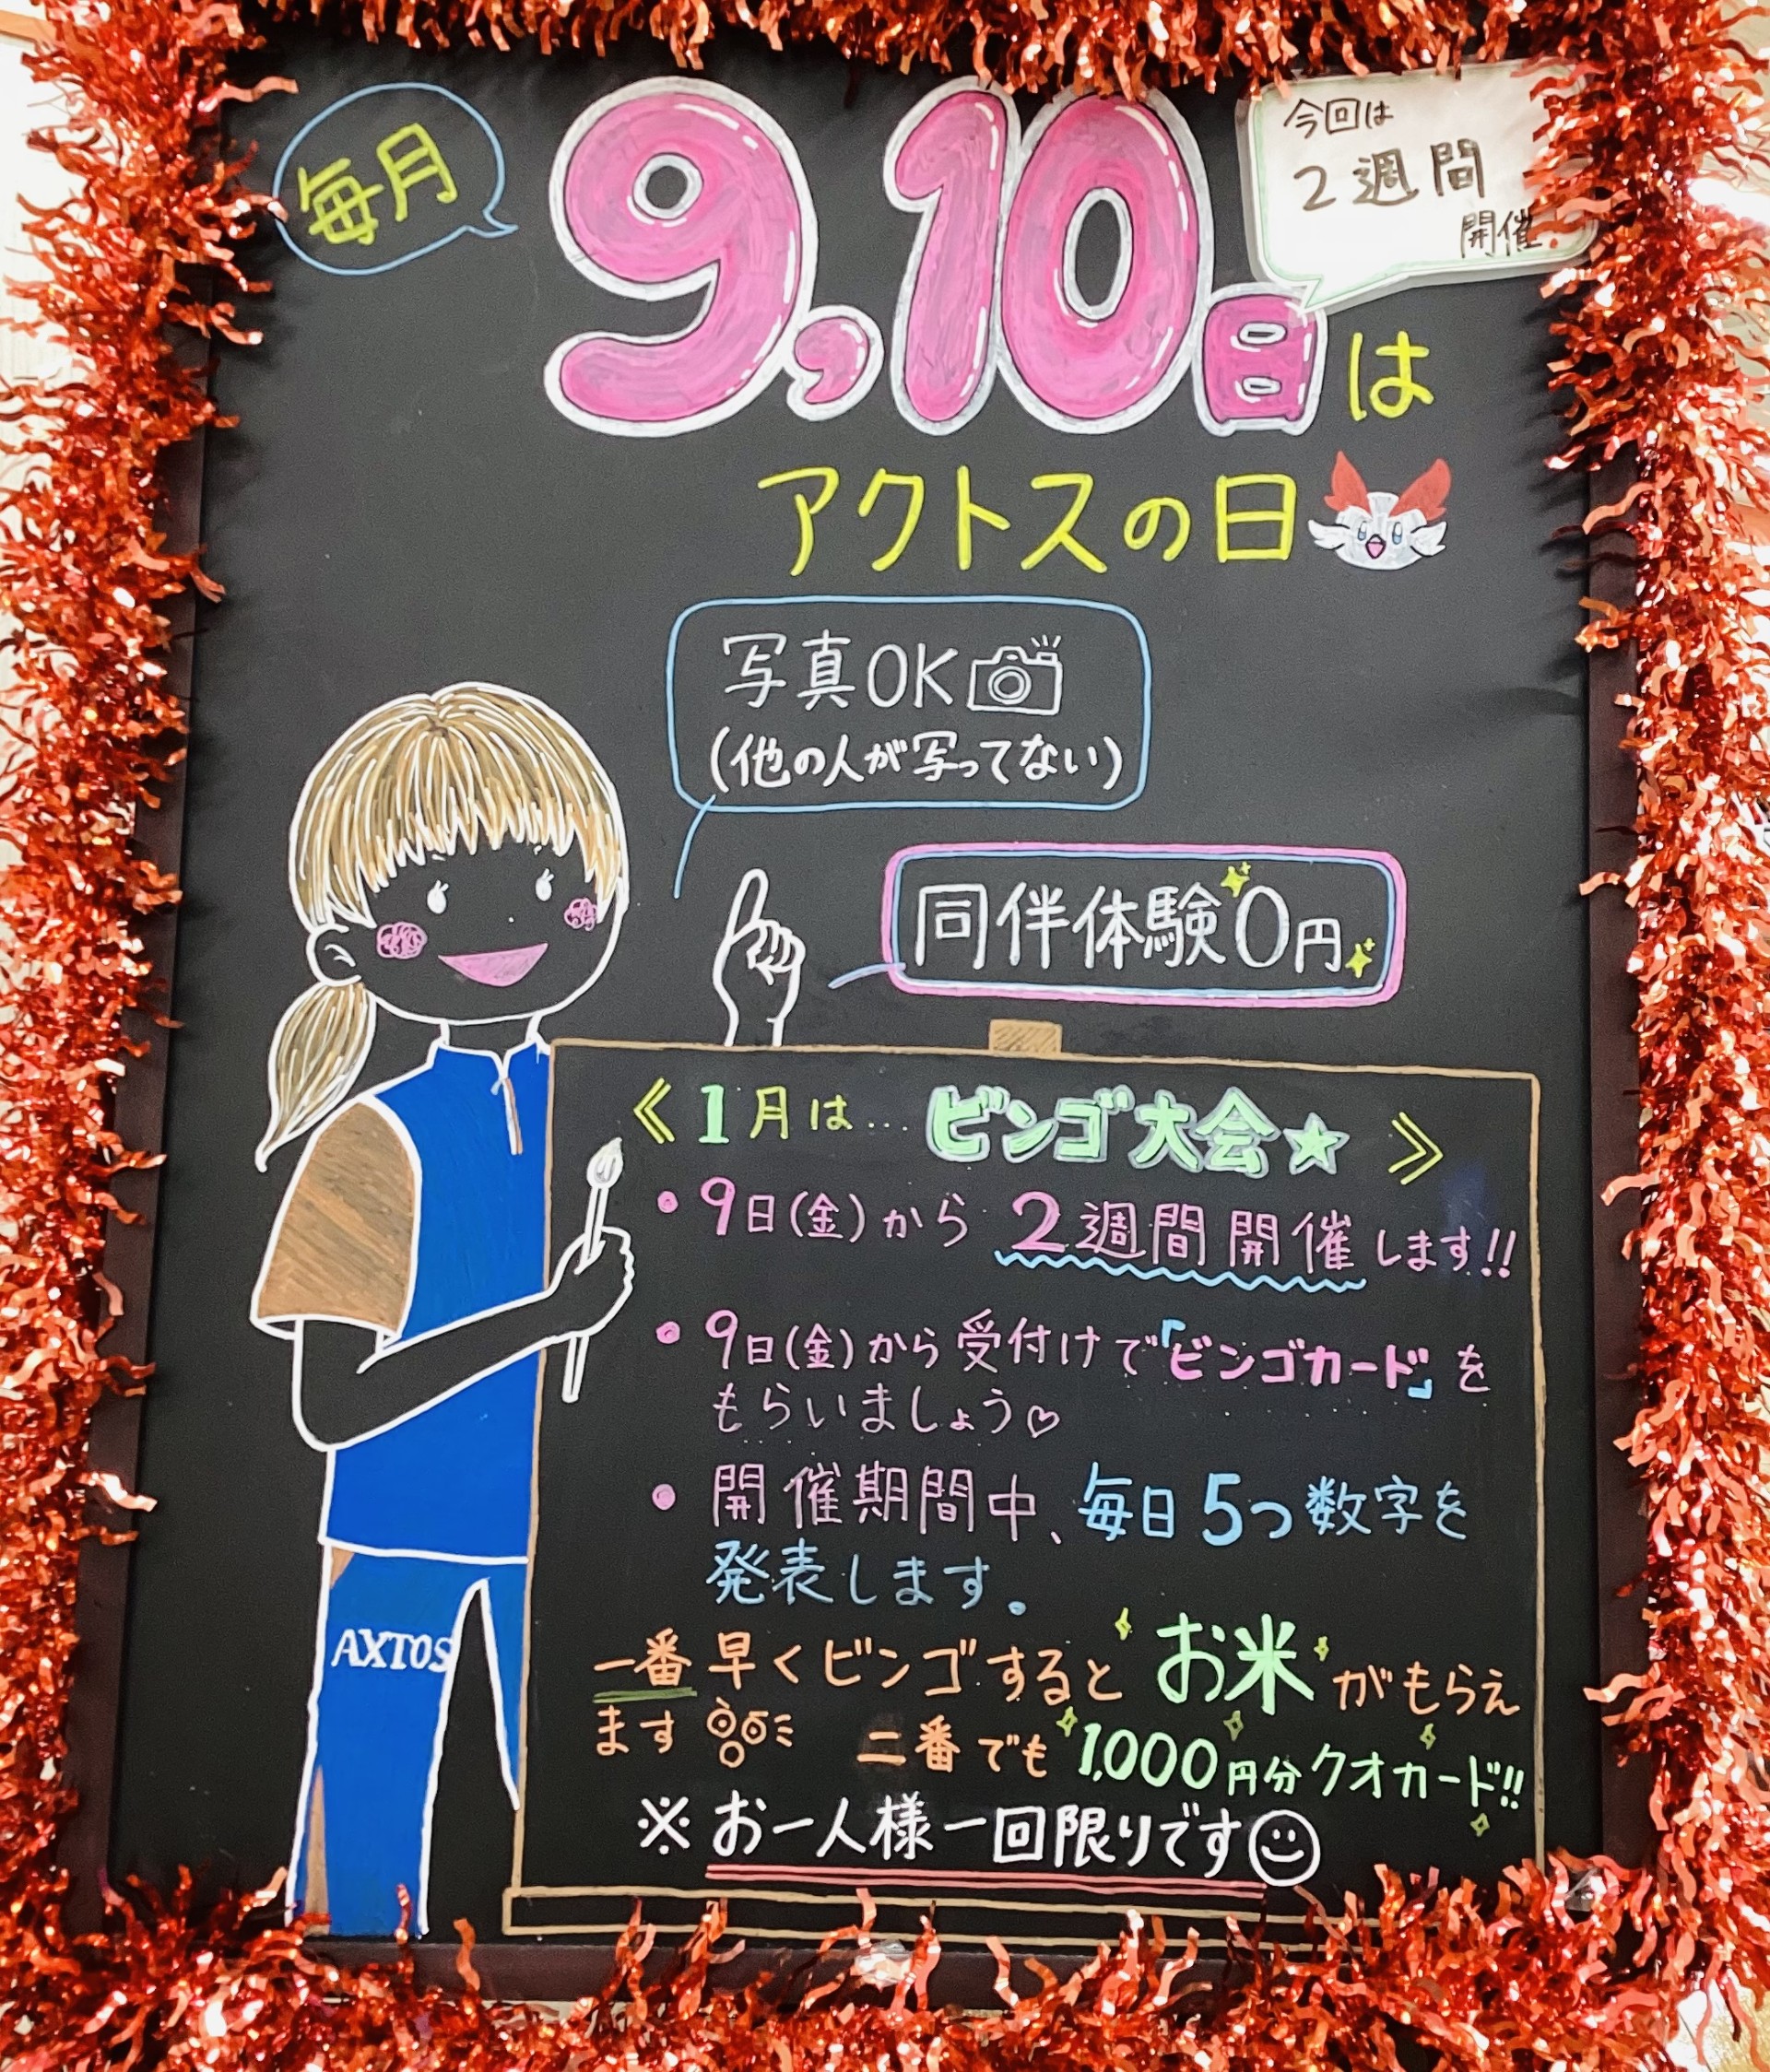 毎月
9,10日は
今回は
2週間
開催
アクトスの日
写真OK
(他の人が写ってない)
同伴体験0円
《1月は...ビンゴ大会★》
・9日(金)から2週間開催します!!
・9日(金)から受付けで「ビンゴカード」を
もらいましょう♡
・開催期間中、毎日5つ数字を
発表します。
一番早くビンゴするとお米がもらえ
ます 二番でも1,000円分クオカード!!
※お一人様一回限りです☺
AXTOS